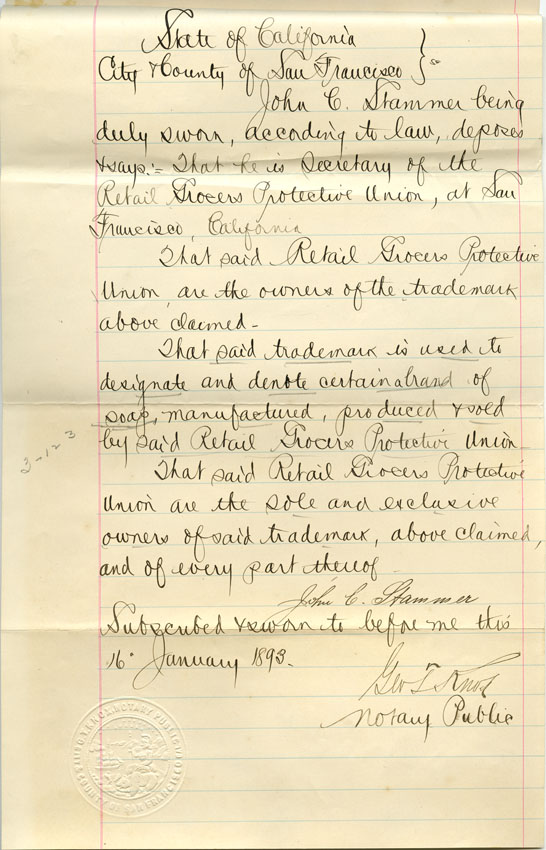 State of California
City & County of San Francisco } ss
John C. Stammer being
duly sworn, according to law, deposes
& says:- That he is Secretary of the
Retail Grocers Protective Union, at San
Francisco, California
That said Retail Grocers Protective
Union, are the owners of the trademark
above claimed-
That said trademark is used to
designate and denote certain brand of
soap, manufactured, produced & sold
by said Retail Grocers Protective Union-
That said Retail Grocers Protective
Union are the sole and exclusive
owners of said trademark, above claimed,
and of every part thereof
John C. Stammer
Subscribed & sworn to before me this
16 January 1893.
Geo T. Knox
Notary Public
3-123
NOTARY PUBLIC
COUNTY OF SAN FRANCISCO